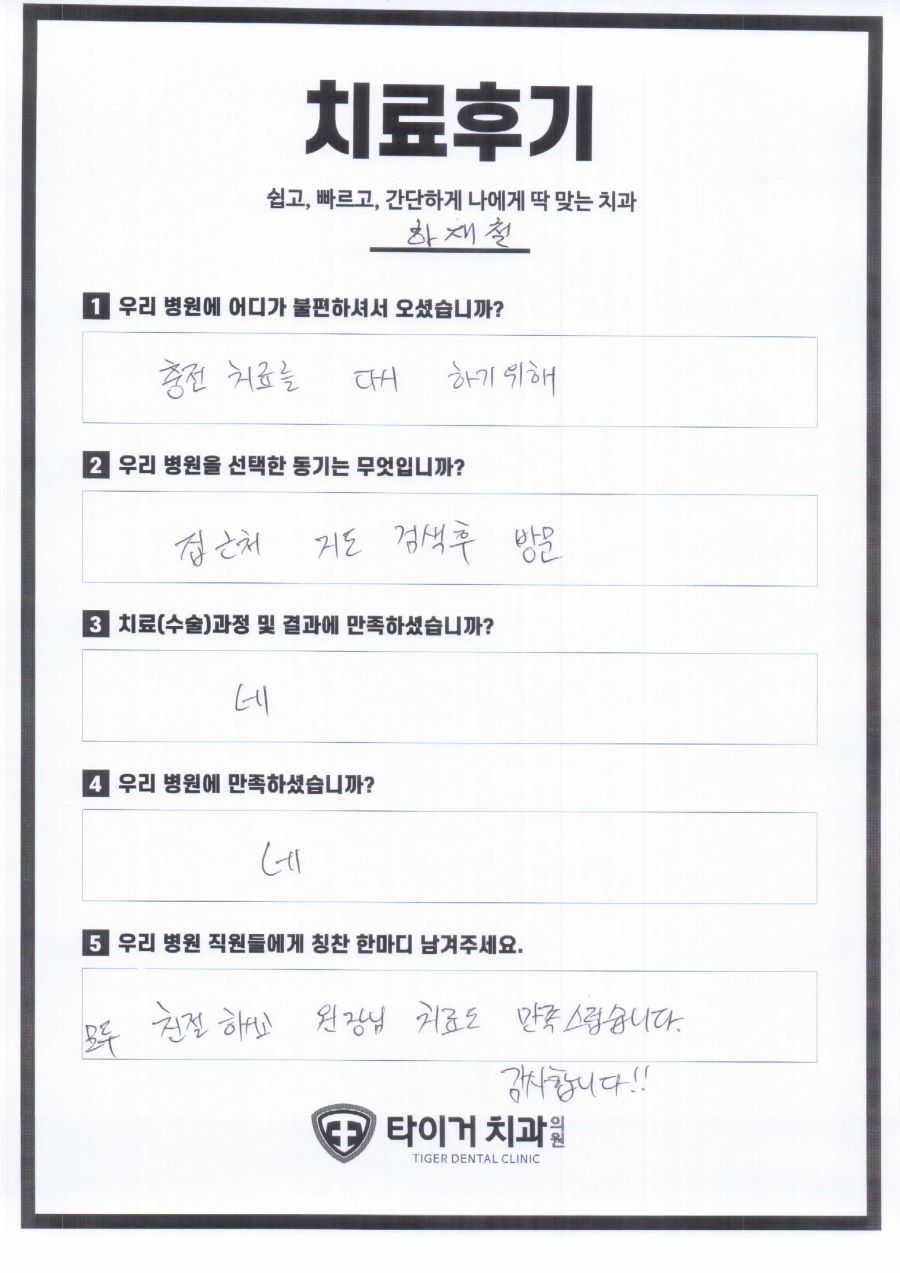 치료후기
쉽고, 빠르고, 간단하게 나에게 딱 맞는 치과
하재철
1 우리 병원에 어디가 불편하셔서 오셨습니까?
충전 치료를 다시 하기위해
2 우리 병원을 선택한 동기는 무엇입니까?
집 근처 지도 검색후 방문
3 치료(수술)과정 및 결과에 만족하셨습니까?
네
4 우리 병원에 만족하셨습니까?
네
5 우리 병원 직원들에게 칭찬 한마디 남겨주세요.
모두 친절하시고 원장님 치료도 만족스럽습니다.
감사합니다!!
타이거 치과의원
TIGER DENTAL CLINIC